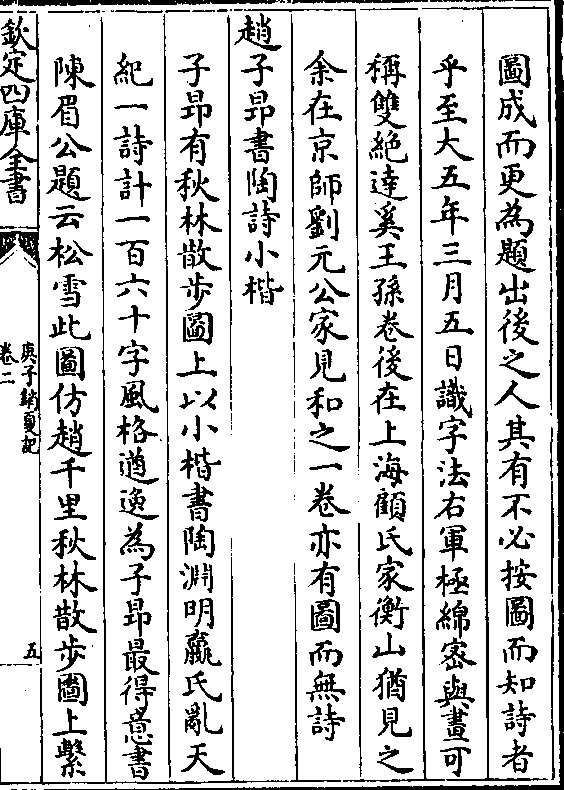 圖成而更為題出後之人其有不必按圖而知詩者
乎至大五年三月五日識字法右軍極綿密與畫可
稱雙絶達奚王孫卷後在上海顧氏家衡山猶見之
余在京師劉元公家見和之一卷亦有圖而無詩
趙子昂書陶詩小楷
子昂有秋林散步圖上以小楷書陶淵明嬴氏亂天
紀一詩計一百六十字風格遒逸為子昂最得意書
陳眉公題云松雪此圖仿趙千里秋林散步圖上繫
欽定四庫全書
庚子銷夏記
卷二
五